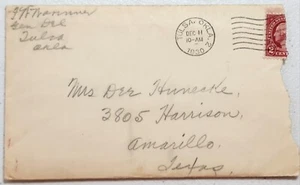 Gen Del
Tulsa
Okla
TULSA, OKLA. 2
DEC 11
10-AM
1930
Mrs Dee Huneake,
3805 Harrison,
Amarillo,
Texas.